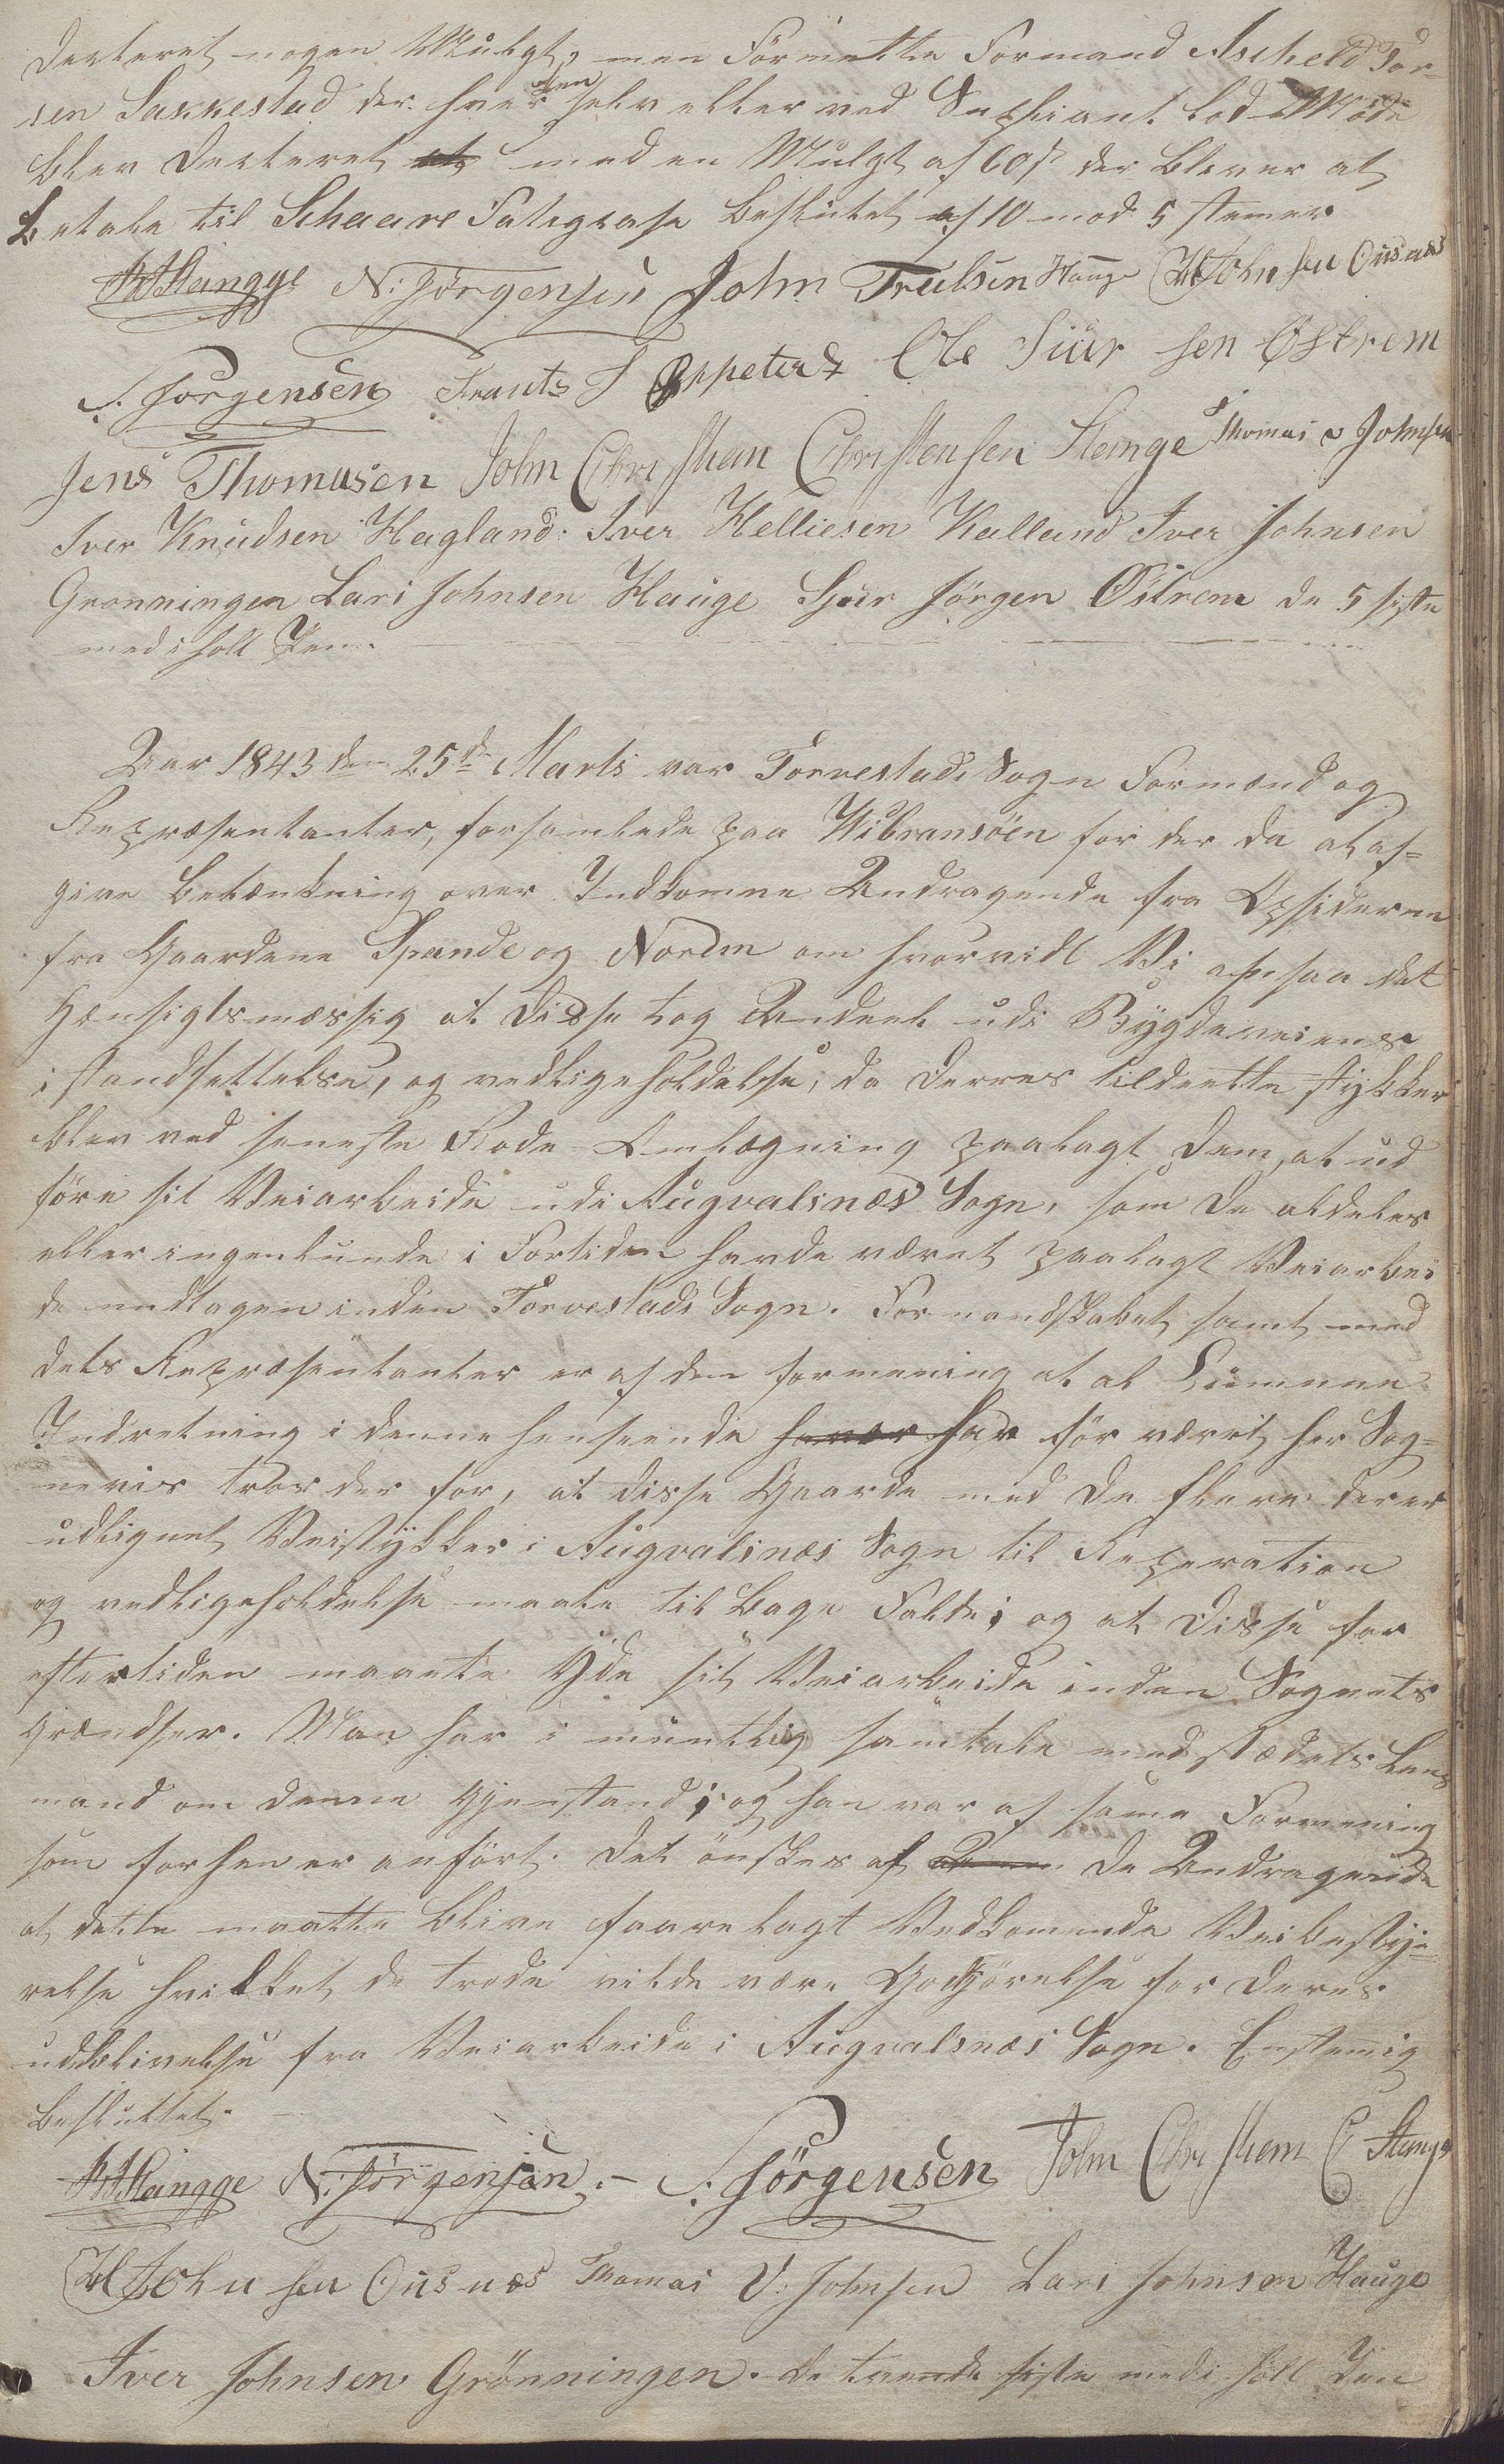 decteret nogen Mulgt, men Førnætte Formand Ascheld Tor-
sen Sakkestad der hver den selv eller ved Supliant lod Møde
blev decteret at med en Mulgt af 60 s der bliver at
betale til Schaare Fategcasse besluttet af 10 mod 5 stemer
N: Jørgensen John Trulsen Hauge Johnsen Ousnæs
S. Jørgensen Frants J Oppetad Ole Siur sen Østrem
Jens Thomasen John Christian Christensen Stange Thomas v Johnsen
Iver Knudsen Hagland. Iver Helliesen Kalland Iver Johnsen
Grønningen Lars Johnsen Hauge Sjur Jørgen Østrem de 5 siste
med i holt Pen.
Aar 1843 den 25de Marts var Torvestads Sogn Formænd og
Repræsentanter, forsamlede paa Wibransöen for der da at af=
give betænkning over Indkomne Andragende fra Opsiderne
fra Gaardene Spande og Nordm om hvorvidt Vi ansaa det
Hensigtsmæssig at disse tog Andeel udi Bygdeveiens
istandsettelse, og vedligeholdelse, da derres tildeelte stykker
blev ved seneste Rode-Omlægning paalagt dem, at ud
føre sit Veiarbeide udi Augvalsnæs Sogn, som de aldeles
eller ingenlunde i Fortiden havde været paalagt Veiarbei
de undtagen inden Torvestads Sogn. Formandskabet samt med
dets Repræsentanter er af den formening at al Lumnne
Indretning i denne henseende haver har før været her Sog=
nevis tror der for, at disse Gaarde med de flere derer
udlignet Veistykker i Augvalsnæs Sogn til Reperation
og vedligeholdelse maate til bage Falde; og at disse for
eftertiden maatte Yde sit Veiarbeide inden Sognets
Grændser. Man har i muntlig samtale med stædets Lens
mand om denne Gjenstand; og han var af same Formening
som forhen er anført. Det ønskes af de Andragende
at dette maatte blive faarelagt Vedkomende Veibestye
relse hvilket de trode vilde være Godtjørelse for deres
udeblivelse fra Veiarbeide i Augvalsnæs Sogn. Enstemig
besluttet.
N: Jørgensen. - S. Jørgensen John Christian C Stange
Johnsen Ousnæs Thomas V. Johnsen Lars Johnsen Hauge
Iver Johnsen Grønningen. de trende siste med i holt Pen